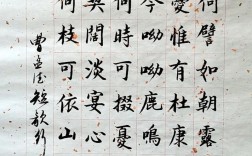 何譬如朝露
憂惟有杜康
今呦呦鹿鳴
何時可掇憂
契闊淡宴心
何枝可依山
曹孟德短歌行